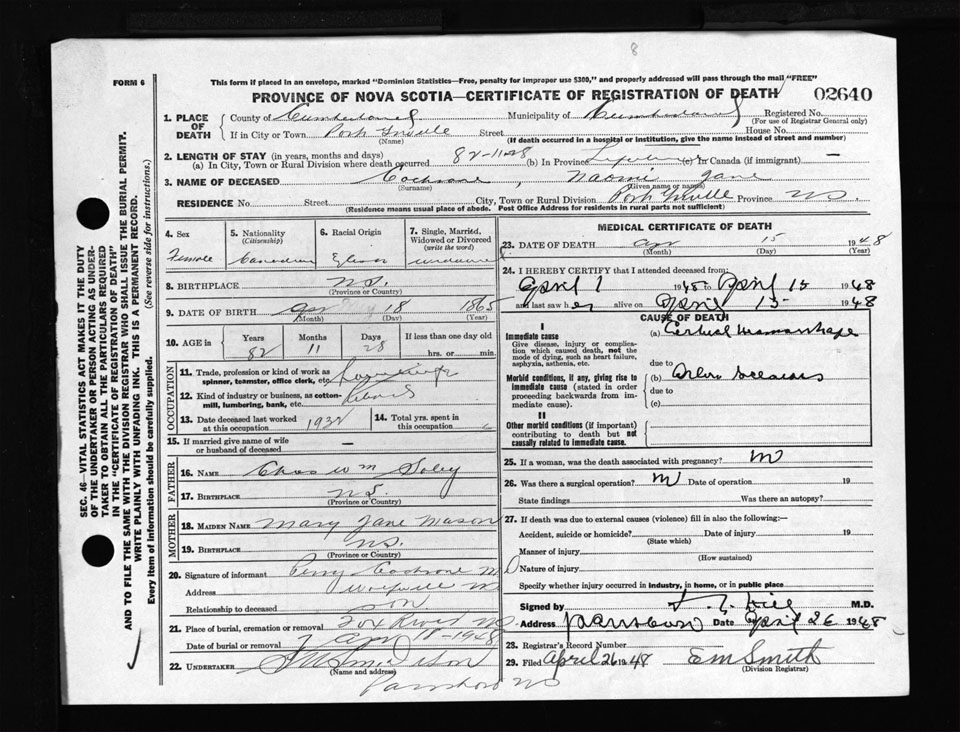 8
FORM 6
This form if placed in an envelope, marked "Dominion Statistics—Free, penalty for improper use $300," and properly addressed will pass through the mail "FREE"
PROVINCE OF NOVA SCOTIA—CERTIFICATE OF REGISTRATION OF DEATH 02640
1. PLACE OF DEATH
County of Cumberland Municipality of Cumberland Registered No.
(For use of Registrar General only)
If in City or Town Port Street House No.
(Name) (If death occurred in a hospital or institution, give the name instead of street and number)
2. LENGTH OF STAY (in years, months and days)
(a) In City, Town or Rural Division where death occurred 82-11-28 (b) In Province Lifetime (c) In Canada (if immigrant) —
3. NAME OF DECEASED Cochrane, Naomi Jane
(Surname) (Given name or names)
RESIDENCE No. Street City, Town or Rural Division Port Province NS
(Residence means usual place of abode. Post Office Address for residents in rural parts not sufficient)
4. Sex
Female
5. Nationality
(Citizenship)
Canadian
6. Racial Origin
7. Single, Married, Widowed or Divorced
(write the word)
8. BIRTHPLACE N.S.
(Province or Country)
9. DATE OF BIRTH Apr 18 1865
(Month) (Day) (Year)
10. AGE in Years Months Days If less than one day old
82 11 28 hrs. or min.
OCCUPATION
11. Trade, profession or kind of work as spinner, teamster, office clerk, etc.
12. Kind of industry or business, as cotton-mill, lumbering, bank, etc.
13. Date deceased last worked at this occupation 1932
14. Total yrs. spent in this occupation
15. If married give name of wife or husband of deceased —
FATHER
16. NAME Chas Wm Soley
17. BIRTHPLACE NS
(Province or Country)
MOTHER
18. MAIDEN NAME Mary Jane Mason
19. BIRTHPLACE NS.
(Province or Country)
20. Signature of informant Percy Cochrane
Address Wolfville
Relationship to deceased Son
21. Place of burial, cremation or removal Fox River NS
Date of burial or removal Apr 18-1948
22. UNDERTAKER
(Name and address)
Parrsboro NS
MEDICAL CERTIFICATE OF DEATH
23. DATE OF DEATH Apr 15 1948
(Month) (Day) (Year)
24. I HEREBY CERTIFY that I attended deceased from:
April 1 1948 to April 15 1948
and last saw her alive on April 15 1948
CAUSE OF DEATH
I
Immediate cause
Give disease, injury or complication which caused death, not the mode of dying, such as heart failure, asphyxia, asthenia, etc.
(a)
due to
Morbid conditions, if any, giving rise to immediate cause (stated in order proceeding backwards from immediate cause).
(b)
due to
(c)
II
Other morbid conditions (if important) contributing to death but not causally related to immediate cause.
25. If a woman, was the death associated with pregnancy?
26. Was there a surgical operation? Date of operation 19
State findings Was there an autopsy?
27. If death was due to external causes (violence) fill in also the following:—
Accident, suicide or homicide? Date of injury 19
(State which)
Manner of injury
(How sustained)
Nature of injury
Specify whether injury occurred in industry, in home, or in public place
Signed by Hill M.D.
Address Parrsboro Date April 26 1948
28. Registrar's Record Number
29. Filed April 26 1948 E M Smith
(Division Registrar)
SEC. 46—VITAL STATISTICS ACT MAKES IT THE DUTY
OF THE UNDERTAKER OR PERSON ACTING AS UNDER-
TAKER TO OBTAIN ALL THE PARTICULARS REQUIRED
IN THE "CERTIFICATE OF REGISTRATION OF DEATH"
AND TO FILE THE SAME WITH THE DIVISION REGISTRAR WHO SHALL ISSUE THE BURIAL PERMIT.
WRITE PLAINLY WITH UNFADING INK. THIS IS A PERMANENT RECORD.
Every item of information should be carefully supplied. (See reverse side for instructions.)